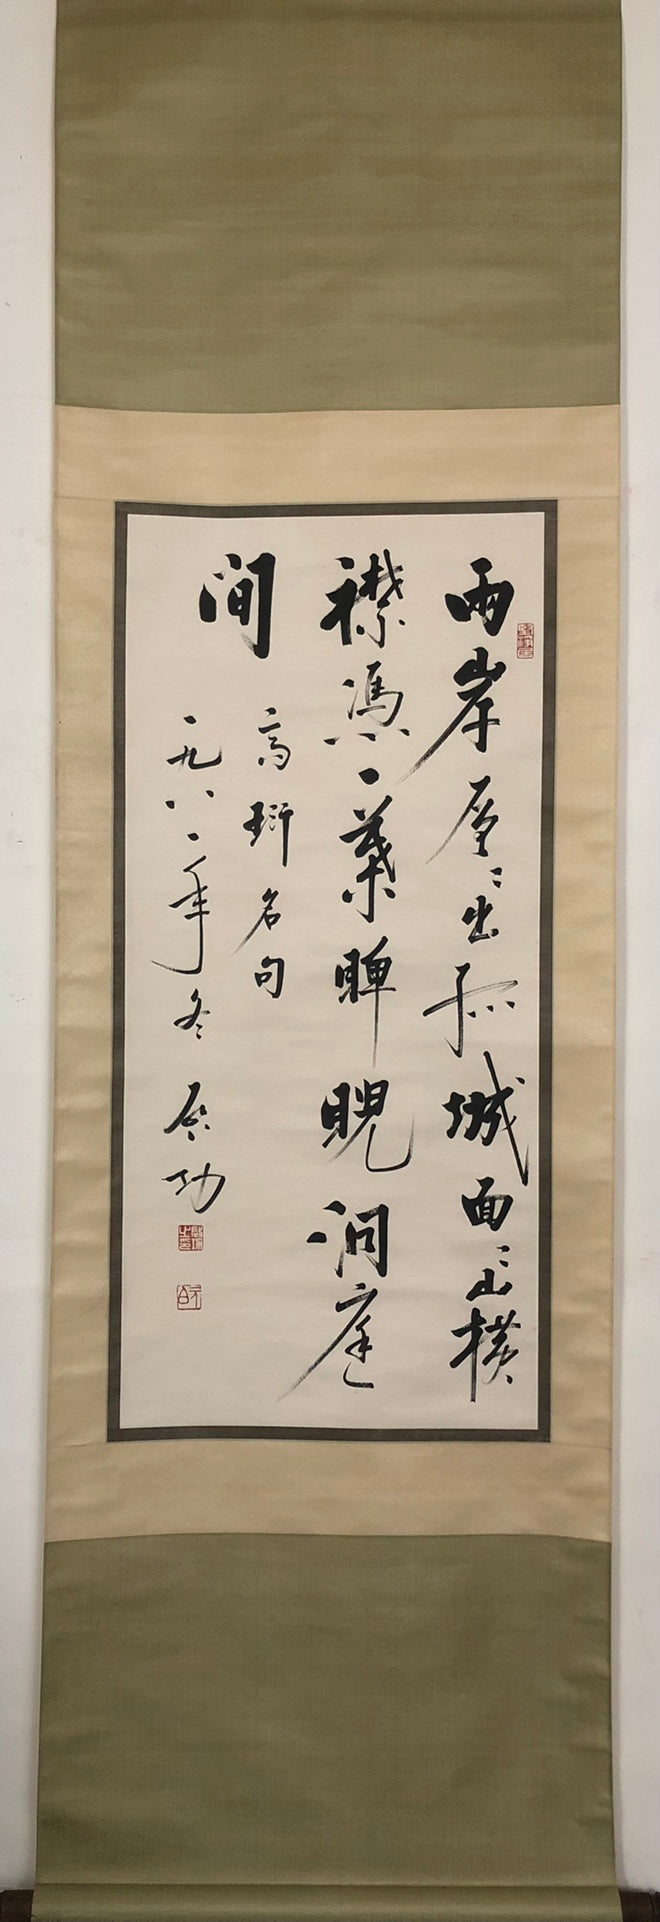 两岸層〻出孤城面〻山横
襟憑一葉睥睨洞庭
间
高珩名句
一九八一年冬 启功